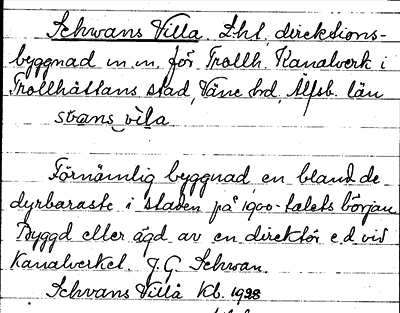 Schwans Villa. Lht, direktions-
byggnad m.m. för Trollh. Kanalverk i
Trollhättans stad, Väne hd, Älfsb. län
svans vila
Förnämlig byggnad en bland de
dyrbaraste i staden på 1900-talets början
Byggd eller ägd av en direktör e.d vid
Kanalverket. J.G. Schwan.
Schvans Villa Kb. 1928